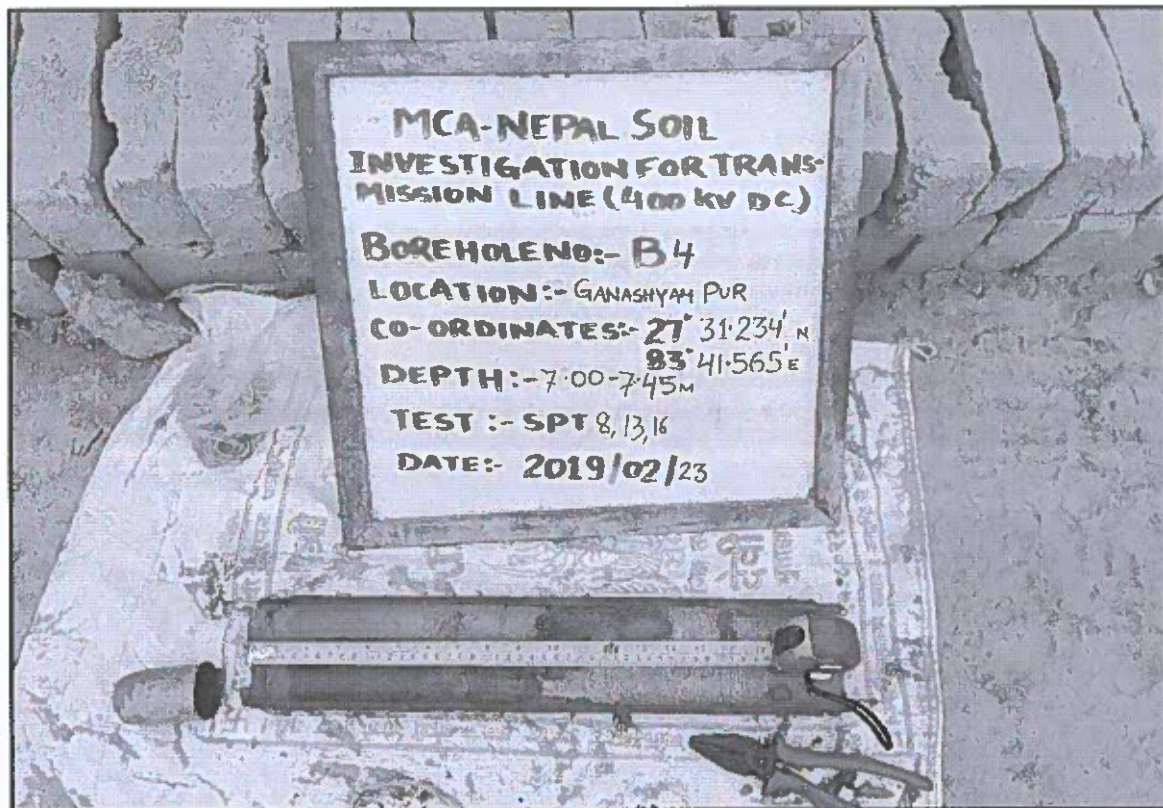 MCA-NEPAL SOIL
INVESTIGATION FOR TRANS-
MISSION LINE (400 KV DC)
BOREHOLE NO:- B4
LOCATION:- GANASHYAM PUR
CO-ORDINATES:- 27° 31.234' N
83° 41.565' E
DEPTH:- 7.00-7.45M
TEST:- SPT 8,13,16
DATE:- 2019/02/23